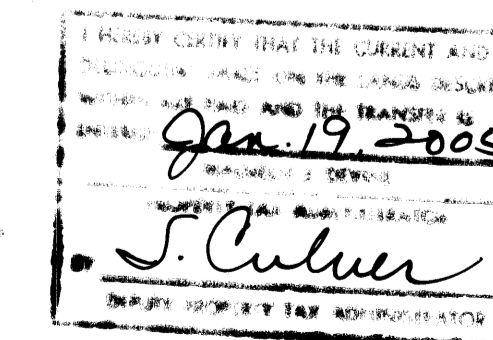 I HEREBY CERTIFY THAT THE CURRENT AND
ON THE LANDS
WITHIN ARE PAID AND THE TRANSFER IS
ENTERED Jan. 19, 2005
PROPERTY TAX ADMINISTRATOR
BY S. Culver
DEPUTY PROPERTY TAX ADMINISTRATOR